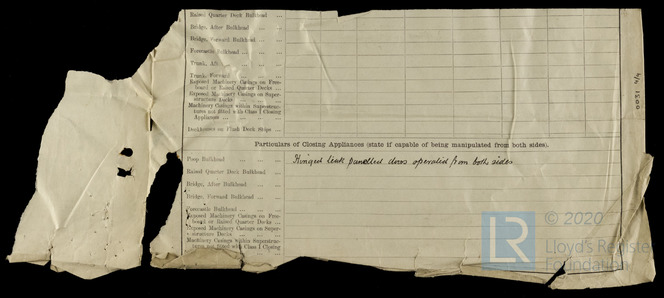 Raised Quarter Deck Bulkhead ...
Bridge, After Bulkhead ... ...
Bridge, Forward Bulkhead ... ...
Forecastle Bulkhead ... ... ...
Trunk, Aft ... ... ...
Trunk, Forward ... ... ...
Exposed Machinery Casings on Free-
board or Raised Quarter Decks ...
Exposed Machinery Casings on Super-
structure Decks ... ... ...
Machinery Casings within Superstruc-
tures not fitted with Class I Closing
Appliances ... ... ... ...
Deckhouses on Flush Deck Ships ...
Particulars of Closing Appliances (state if capable of being manipulated from both sides).
Poop Bulkhead ... ... ... Hinged teak panelled doors operated from both sides
Raised Quarter Deck Bulkhead ...
Bridge, After Bulkhead ... ...
Bridge, Forward Bulkhead ... ...
Forecastle Bulkhead ... ... ...
Exposed Machinery Casings on Free-
board or Raised Quarter Decks ...
Exposed Machinery Casings on Super-
structure Decks ... ... ...
Machinery Casings within Superstruc-
tures not fitted with Class I Closing
© 2020
LR
Lloyd's Register
Foundation